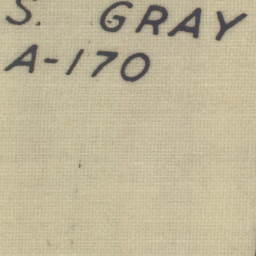 S. GRAY
A-170